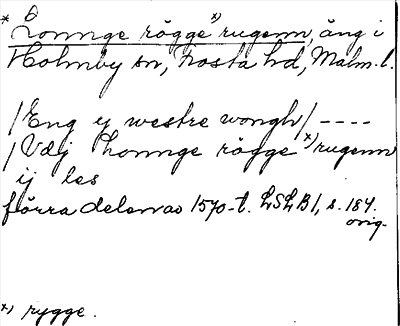 * Lonnge rögge x) rugenn, äng i
Holmby sn, Frosta hd, Malm. l.
/Eng ij westre wongh/ ----
/Vdj Lonnge rögge x) rugenn
ij les
förra delen av 1570-t. LSLB1, s. 184.
orig.
x) rygge.